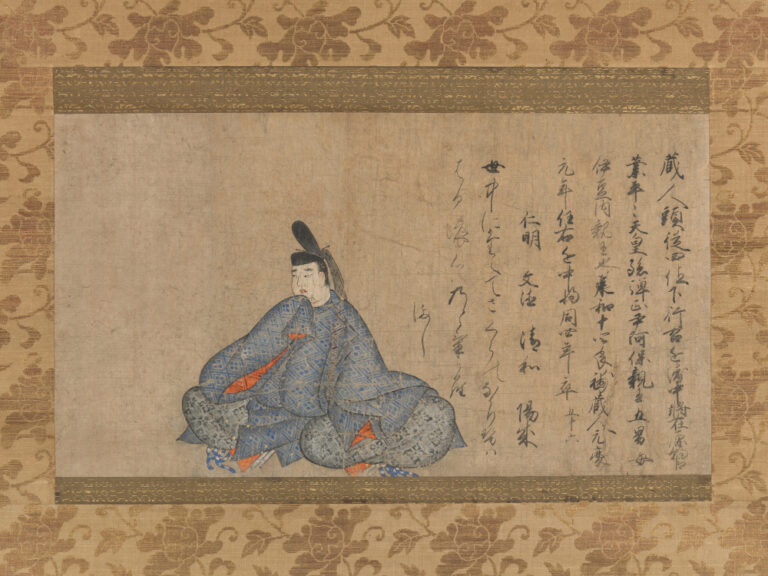 蔵人頭従四位下行右近中将在原朝臣
業平 天皇孫弾正尹阿保親王五男母
伊豆内親王也 承和十四年 補蔵人元慶
元年任右近中将同四年卒
仁明 文徳 清和 陽成
世中にたえてさくらのなかりせハ
はる
まし